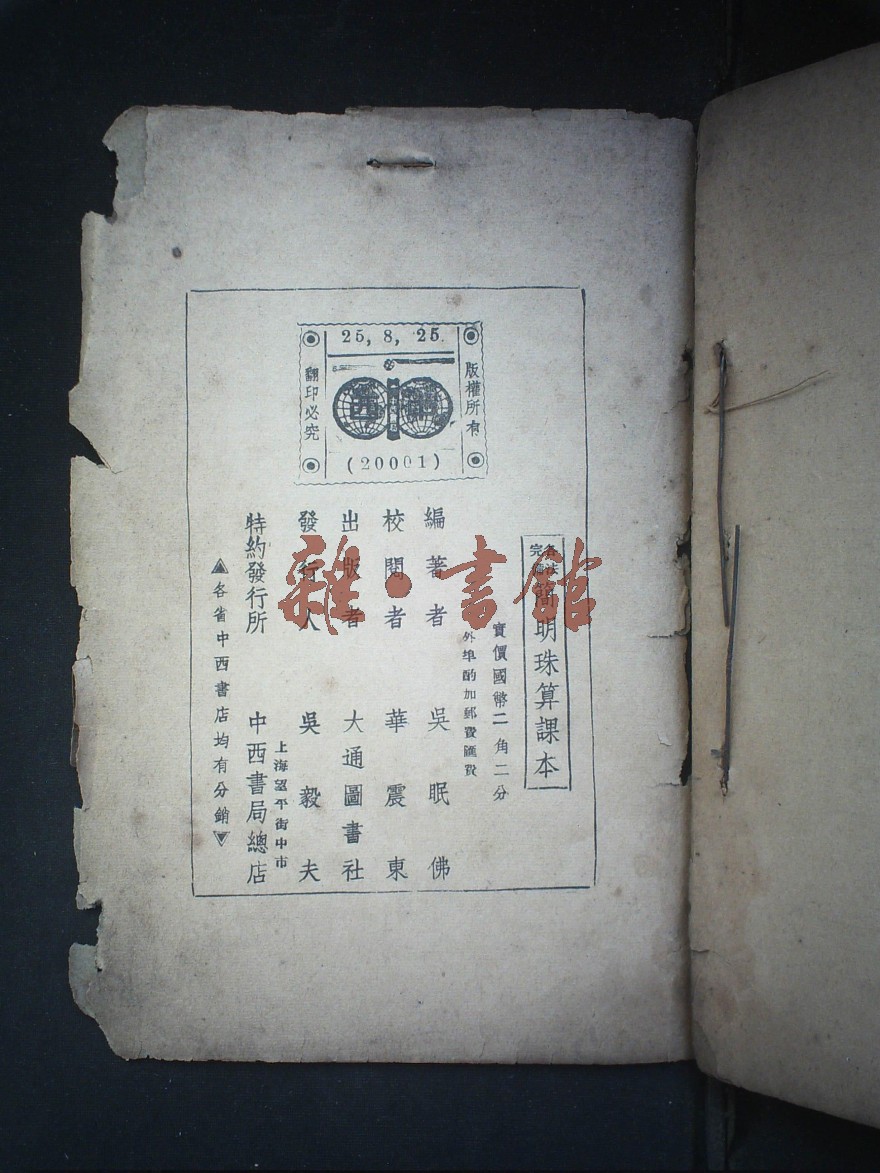 25, 8, 25.
版權所有
翻印必究
西
(20001)
簡明珠算課本
實價國幣二角二分
外埠酌加郵費匯費
編著者 吳眠佛
校閱者 華震東
出版者 大通圖書社
發行人 吳毅夫
上海望平街中市
特約發行所 中西書局總店
▲各省中西書店均有分銷▼
雜·書館